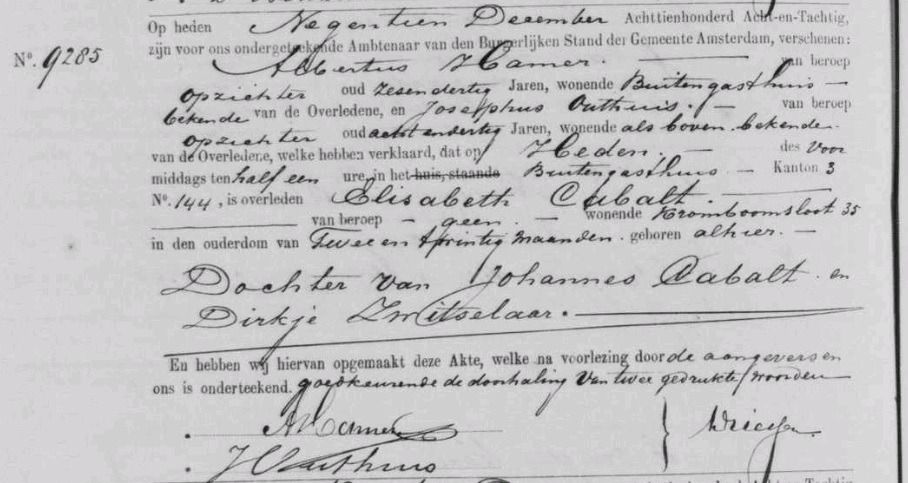 Op heden Negentien December Achttienhonderd Acht-en-Tachtig,
zijn voor ons ondergeteekende Ambtenaar van den Burgerlijken Stand der Gemeente Amsterdam, verschenen:
No. 9285
Albertus Hamer. van beroep
opzichter oud zesendertig Jaren, wonende Buitengasthuis —
bekende van de Overledene, en Josephus Outhuis. — van beroep
opzichter oud acht endertig Jaren, wonende als boven. bekende.
van de Overledene, welke hebben verklaard, dat op Heden. — des Voor
middags ten half een ure, in het huis, staande Buitengasthuis — Kanton 3
No. 144, is overleden Elisabeth Cabalt. —
van beroep — geen. — wonende Kromboomsloot 35
in den ouderdom van Twee en twintig maanden. geboren alhier. —
Dochter van Johannes Cabalt. en
Dirkje Zwitselaar. —
En hebben wij hiervan opgemaakt deze Akte, welke na voorlezing door de aangevers en
ons is onderteekend. goedkeurende de doorhaling van twee gedrukte woorden
AHamer
JOuthuis